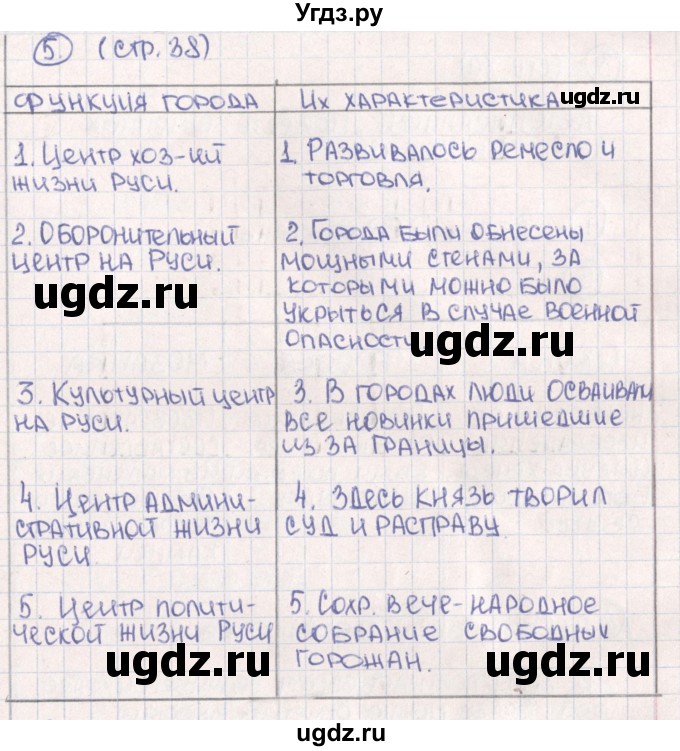 Угдз.ру
5. (стр. 38)
Функция города
Их характеристика
ugdz.ru
1. Центр хоз-ий
жизни Руси.
1. Развивалось ремесло и
торговля.
2. Оборонительный
центр на Руси.
ugdz.ru
2. Города были обнесены
мощными стенами, за
которыми можно было
укрыться в случае военной
опасности
ugdz.ru
3. Культурный центр
на Руси.
3. В городах люди осваивали
все новинки пришедшие
из за границы.
4. Центр админи-
стративной жизни
Руси.
4. Здесь князь творил
суд и расправу.
5. Центр полити-
ческой жизни Руси
ugdz.ru
5. Сохр. вече-народное
собрание свободных
горожан.
ugdz.ru
ugdz.ru